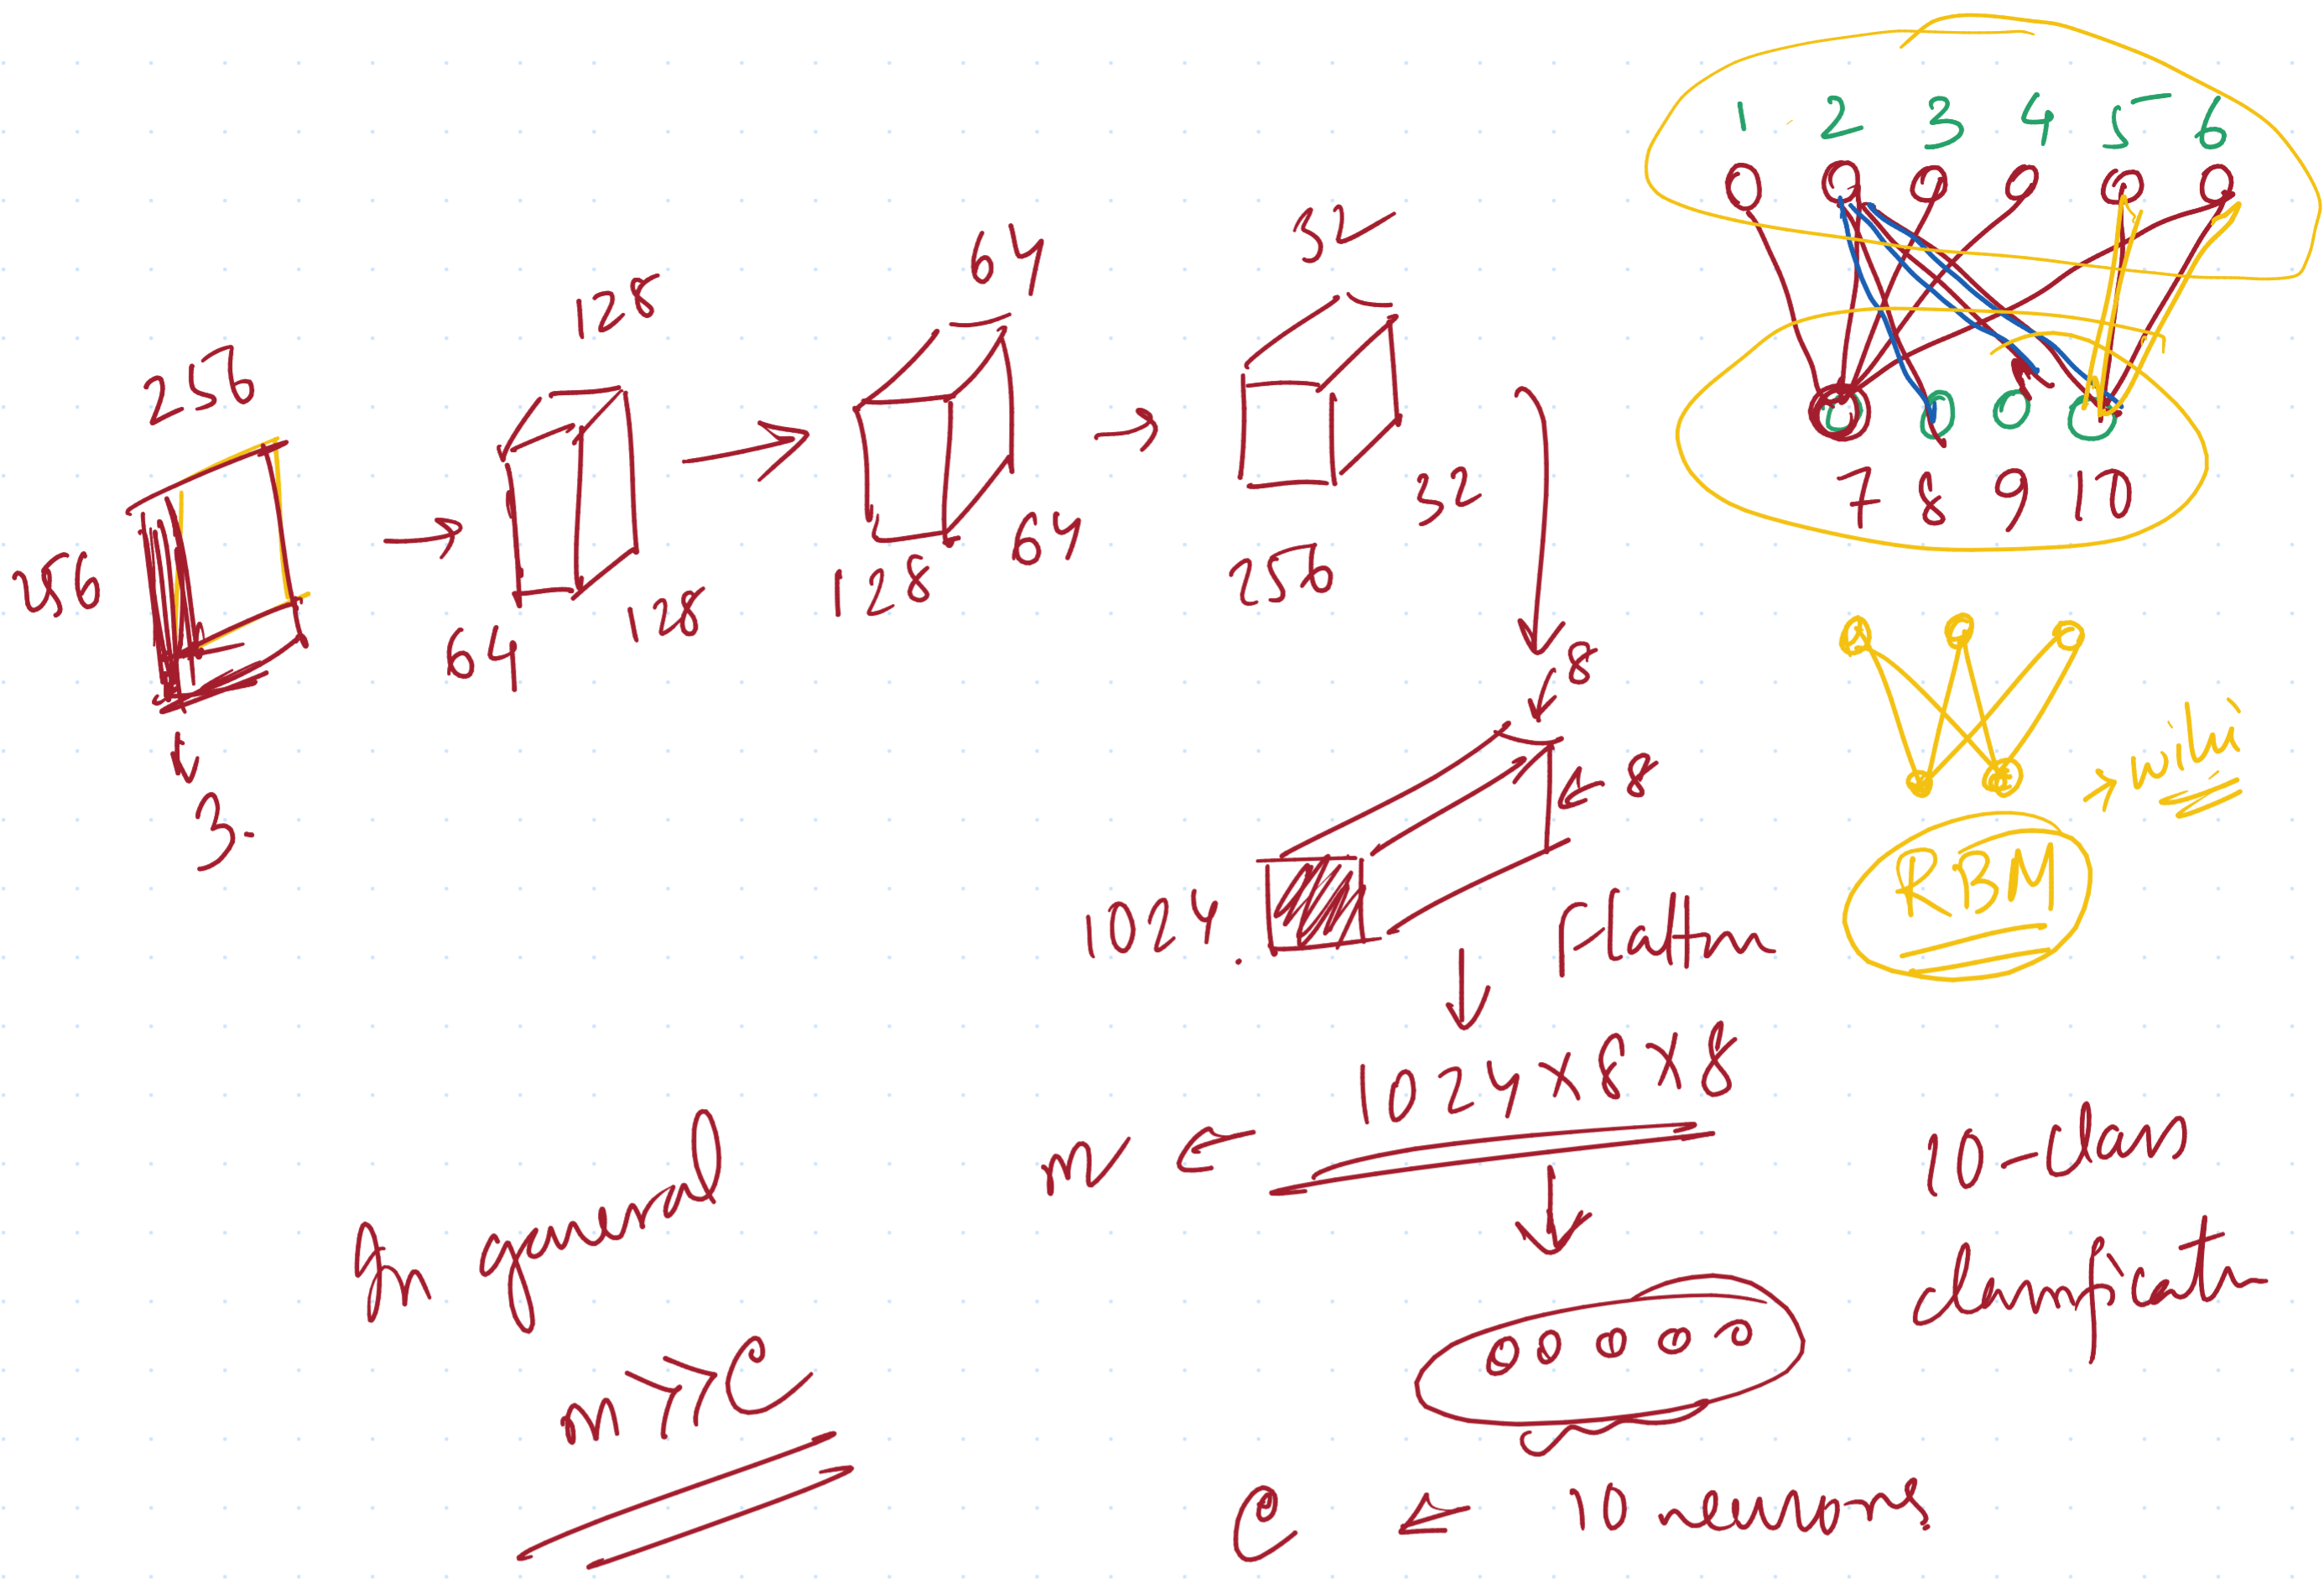 256
256
3
128
64
128
64
128
64
32
256
32
8
8
1024
Flatten
1024×8×8
m
10-class
10 neurons
C
In general
m >> C
1 2 3 4 5 6
7 8 9 10
RBM
wiki